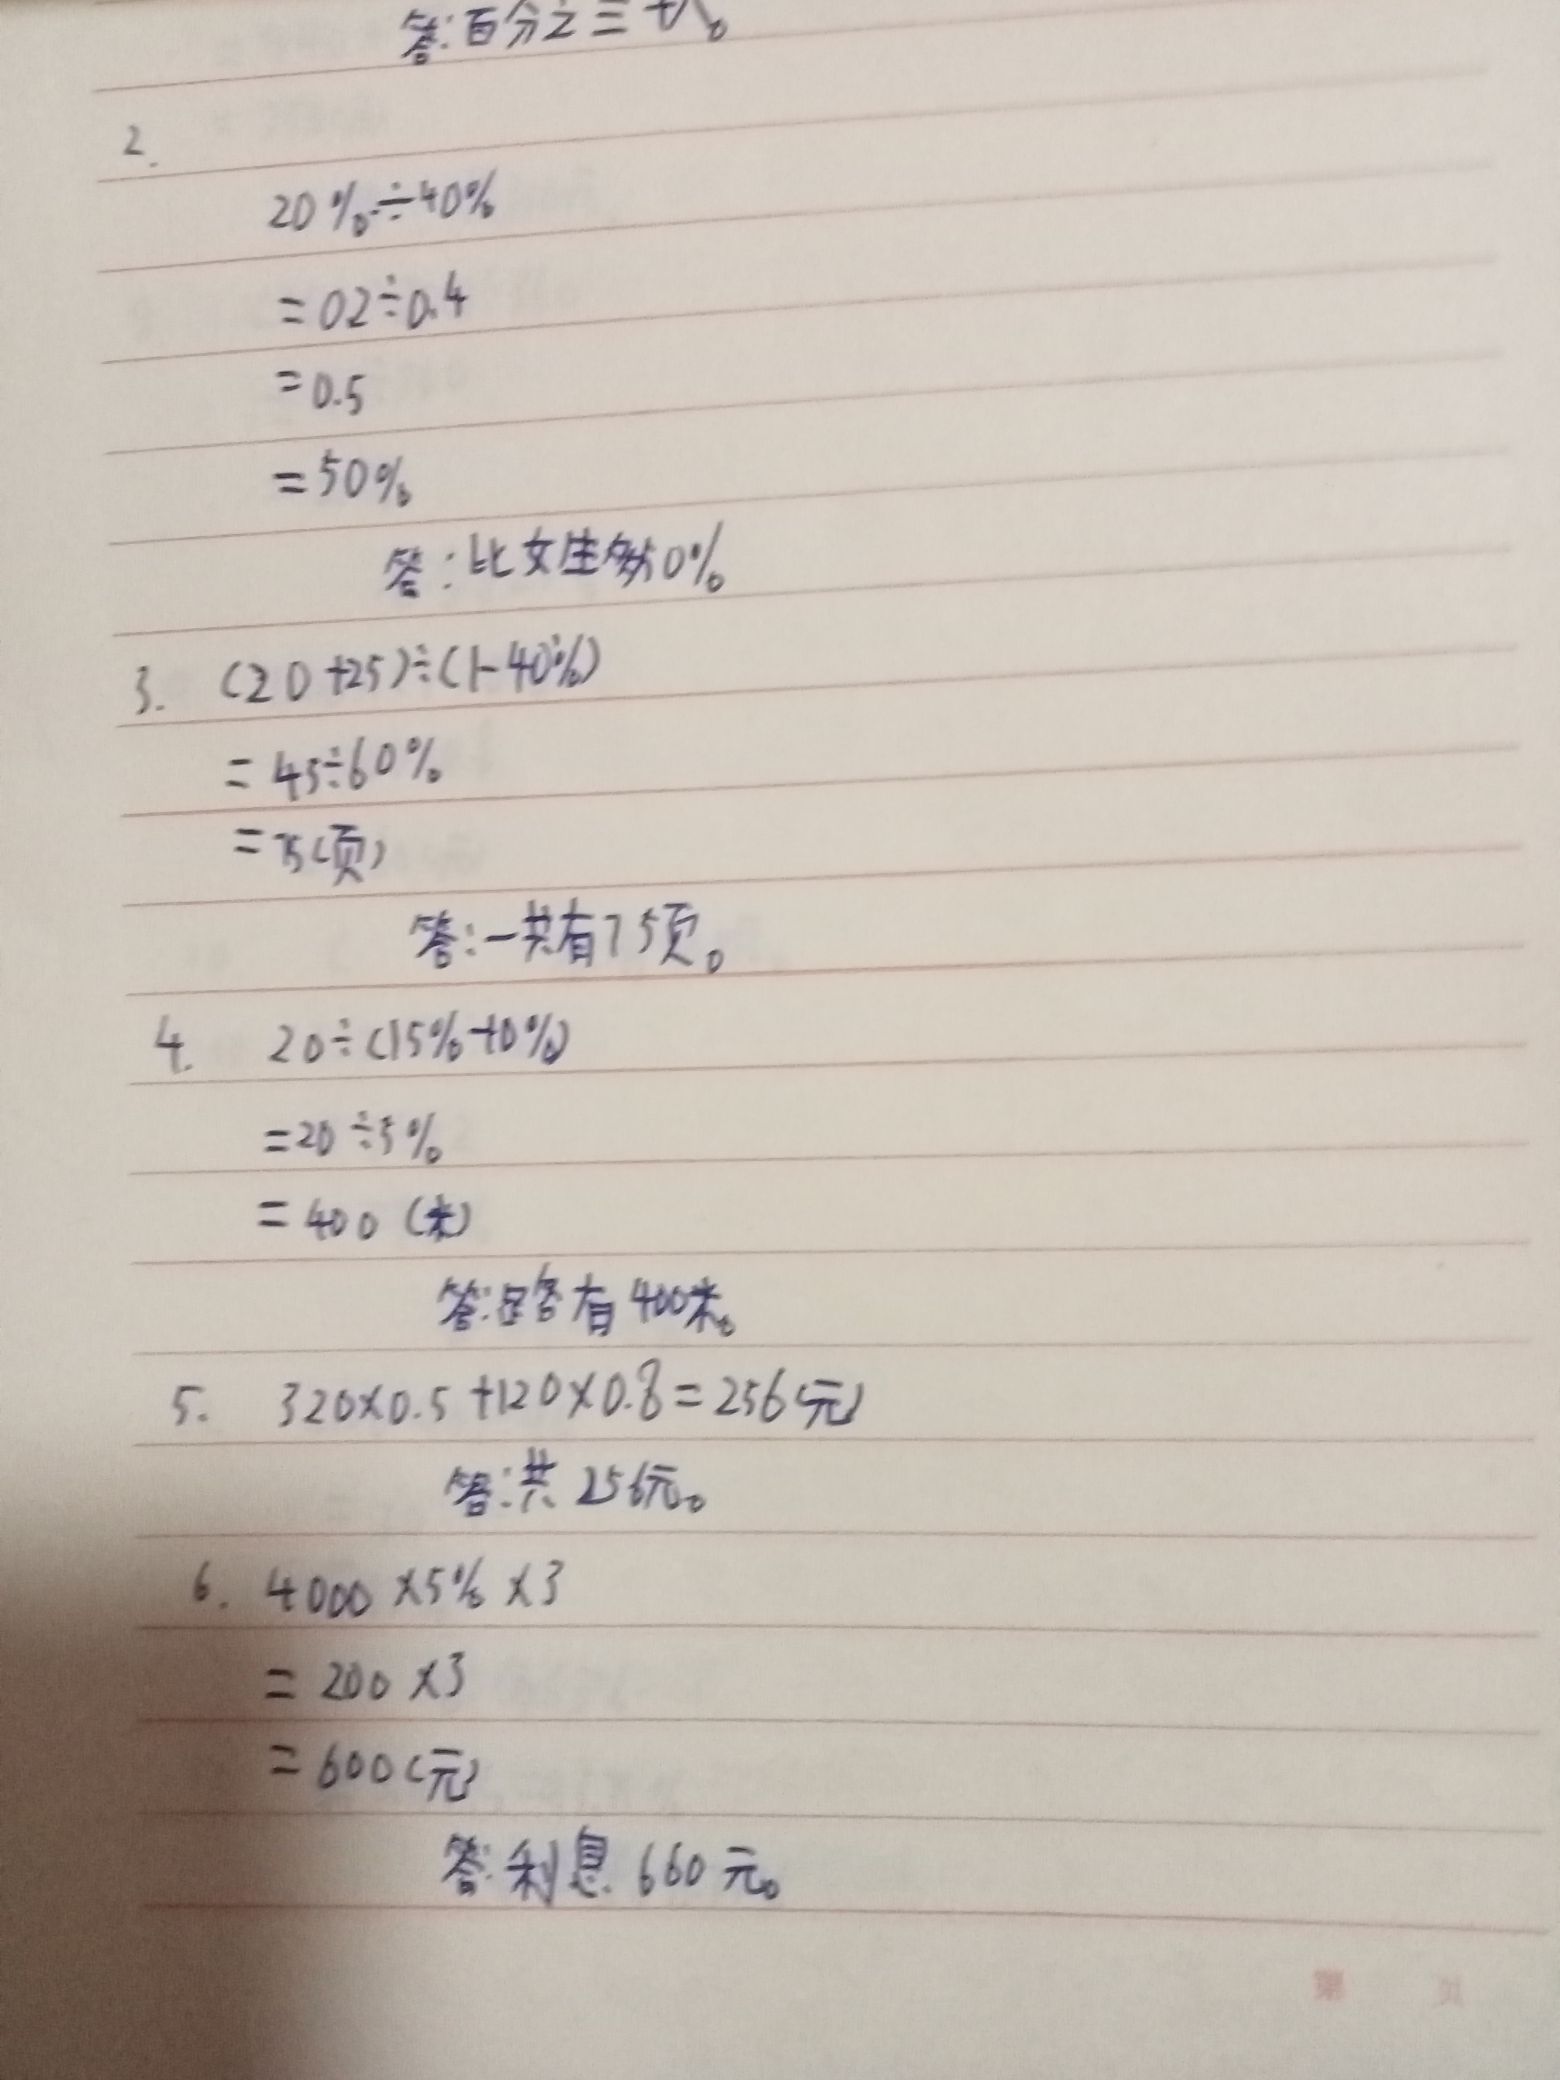 答:百分之三十八。
2.
20%÷40%
=02÷0.4
=0.5
=50%
答:比女生多50%
3. (20+25)÷(1-40%)
=45÷60%
=75(页)
答:一共有75页。
4. 20÷(15%-10%)
=20÷5%
=400(米)
答:路有400米。
5. 320×0.5+120×0.8=256(元)
答:共256元。
6. 4000×5%×3
=200×3
=600(元)
答:利息660元。
第 页